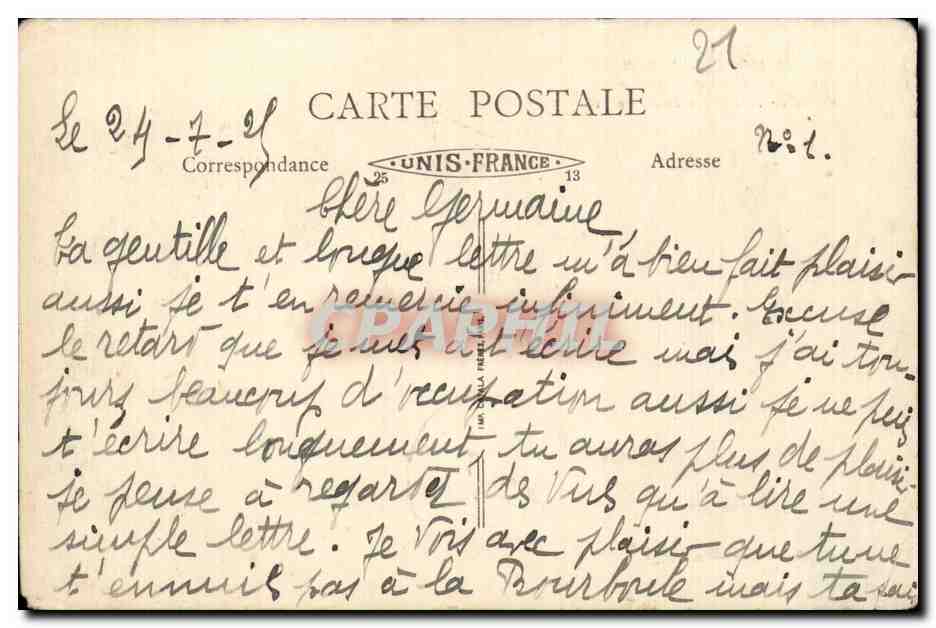 21
CARTE POSTALE
Le 24-7-25
N°:1.
Correspondance UNIS-FRANCE Adresse
25 13
Chère Germaine
Ta gentille et longue lettre m'a bien fait plaisir
aussi je t'en remercie infiniment. Excuse
le retard que je mes a t'écrire mais j'ai tou-
jours beaucoup d'occupation aussi je ne puis
t'écrire longuement, tu auras plus de plaisir
je pense à regarder des Vues qu'à lire une
simple lettre. Je vois avec plaisir que tu ne
t'ennuis pas à la Bourboule mais ta
CPAPHIL